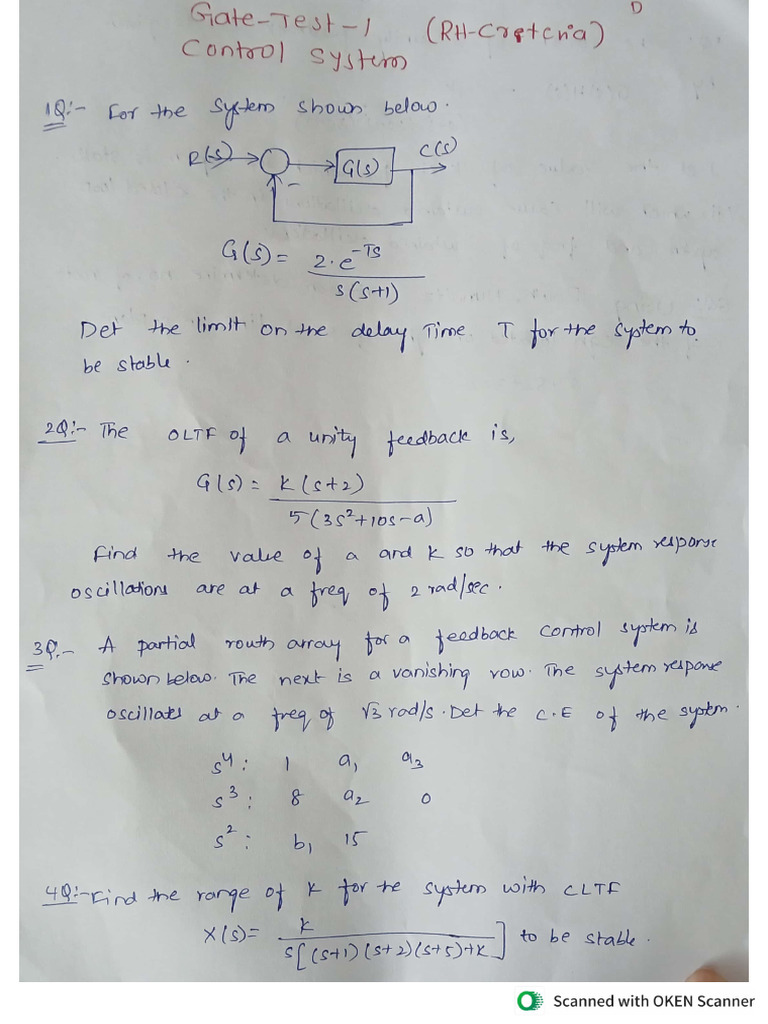 D
Gate-Test-1 (RH-Cretcria)
Control System
1Q:- For the System shown below.
R(s) G(s) C(s)
-
G(s) = 2·e^-Ts
s(s+1)
Det the limit on the delay Time T for the system to
be stable.
2Q:- The OLTF of a unity feedback is,
G(s) = K(s+2)
5(3s²+10s-a)
Find the value of a and K so that the system response
oscillations are at a freq of 2 rad/sec.
3Q.- A partial routh array for a feedback control system is
shown below. The next is a vanishing row. The system response
oscillates at a freq of √3 rad/s. Det the C.E of the system.
s⁴: 1 a₁ a₃
s³: 8 a₂ 0
s²: b₁ 15
4Q:- Find the range of K for the system with CLTF
X(s) = K
s[(s+1)(s+2)(s+5)+K] to be stable.
Scanned with OKEN Scanner